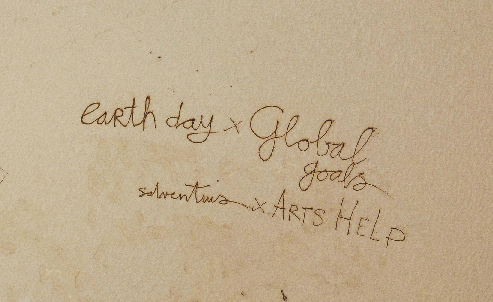 earth day x Global
goals
solventus x ARTS HELP